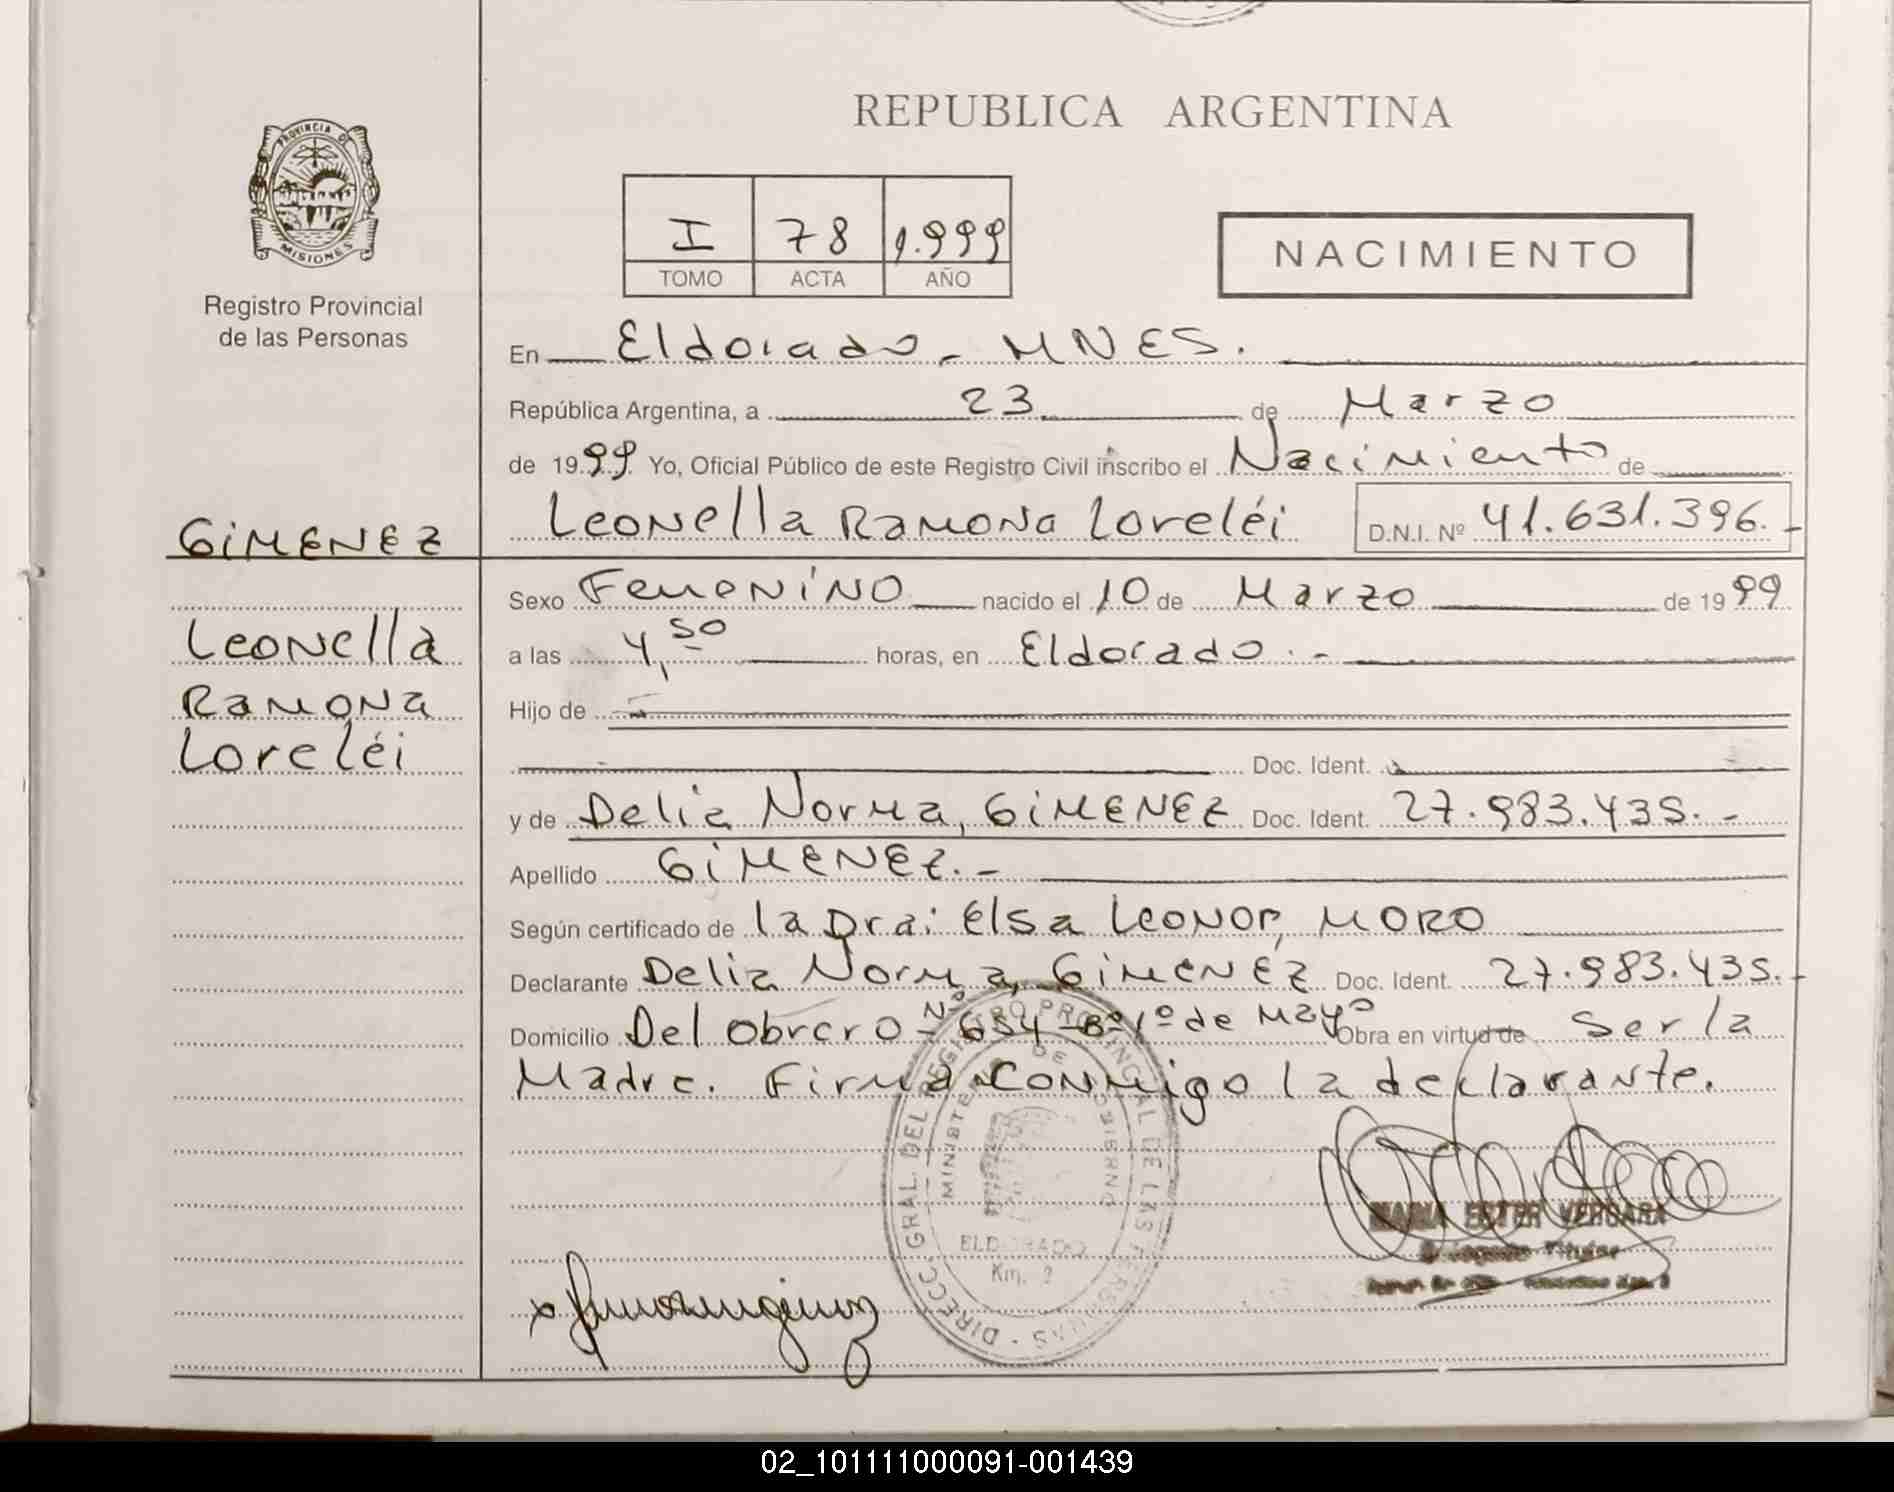 PROVINCIA DE
MISIONES
Registro Provincial
de las Personas
GIMENEZ
Leonella
Ramona
Loreléi
REPUBLICA ARGENTINA
I 78 1.999
TOMO ACTA AÑO
NACIMIENTO
En Eldorado - MNES.
República Argentina, a 23 de Marzo
de 1999 Yo, Oficial Público de este Registro Civil inscribo el Nacimiento de
Leonella Ramona Loreléi D.N.I. Nº 41.631.396.-
Sexo Femenino nacido el 10 de Marzo de 1999
a las 4,50 horas, en Eldorado.-
Hijo de
Doc. Ident.
y de Delia Norma, GIMENEZ Doc. Ident. 27.983.435.-
Apellido GIMENEZ.-
Según certificado de la Dra: Elsa Leonor, MORO
Declarante Delia Norma, GIMENEZ Doc. Ident. 27.983.435.-
Domicilio Del Obrero Nº 654 -Bº 1º de Mayo Obra en virtud de Ser la
Madre. Firma conmigo la declarante.
DIRECC. GRAL. DEL REGISTRO PROVINCIAL DE LAS PERSONAS
MINISTERIO DE GOBIERNO
ELDORADO
Km. 2
MARIA ESTER VERGARA
Titular
02_101111000091-001439